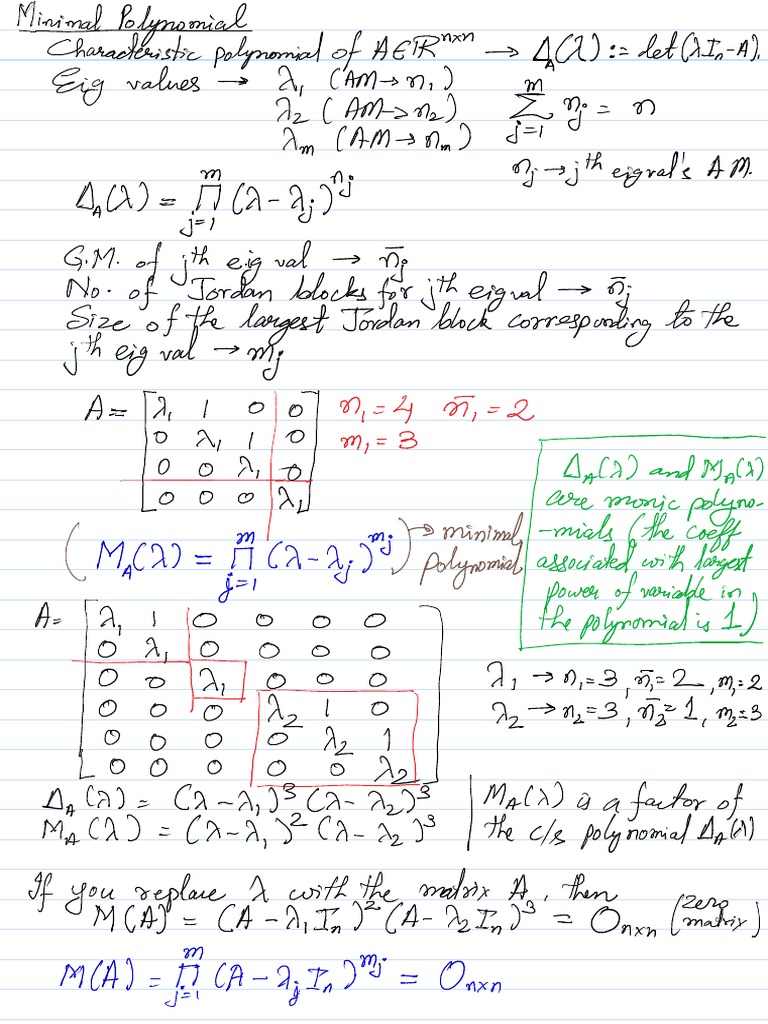 Minimal Polynomial
Characteristic polynomial of A∈ℝⁿˣⁿ → Δ_A(λ) := det(λI_n - A).
Eig values → λ₁ (AM→ n₁)
λ₂ (AM→ n₂)
λ_m (AM→ n_m)
∑_{j=1}^{m} n_j = n
n_j → jᵗʰ eigval's AM.
Δ_A(λ) = ∏_{j=1}^{m} (λ - λ_j)^{n_j}
G.M. of jᵗʰ eig val → n̄_j
No. of Jordan blocks for jᵗʰ eigval → n̄_j
Size of the largest Jordan block corresponding to the
jᵗʰ eig val → m_j
A = [ λ₁ 1 0 0
0 λ₁ 1 0
0 0 λ₁ 0
0 0 0 λ₁ ]
n₁ = 4 n̄₁ = 2
m₁ = 3
Δ_A(λ) and M_A(λ)
are monic polyno-
-mials (the coeff
associated with largest
power of variable in
the polynomial is 1)
( M_A(λ) = ∏_{j=1}^{m} (λ - λ_j)^{m_j} ) → minimal
polynomial
A = [ λ₁ 1 0 0 0 0
0 λ₁ 0 0 0 0
0 0 λ₁ 0 0 0
0 0 0 λ₂ 1 0
0 0 0 0 λ₂ 1
0 0 0 0 0 λ₂ ]
λ₁ → n₁=3, n̄₁=2, m₁=2
λ₂ → n₂=3, n̄₂=1, m₂=3
Δ_A(λ) = (λ-λ₁)³ (λ-λ₂)³
M_A(λ) = (λ-λ₁)² (λ-λ₂)³
M_A(λ) is a factor of
the c/s polynomial Δ_A(λ)
If you replace λ with the matrix A, then
M(A) = (A - λ₁I_n)² (A - λ₂I_n)³ = O_{n×n} (zero
matrix)
M(A) = ∏_{j=1}^{m} (A - λ_j I_n)^{m_j} = O_{n×n}